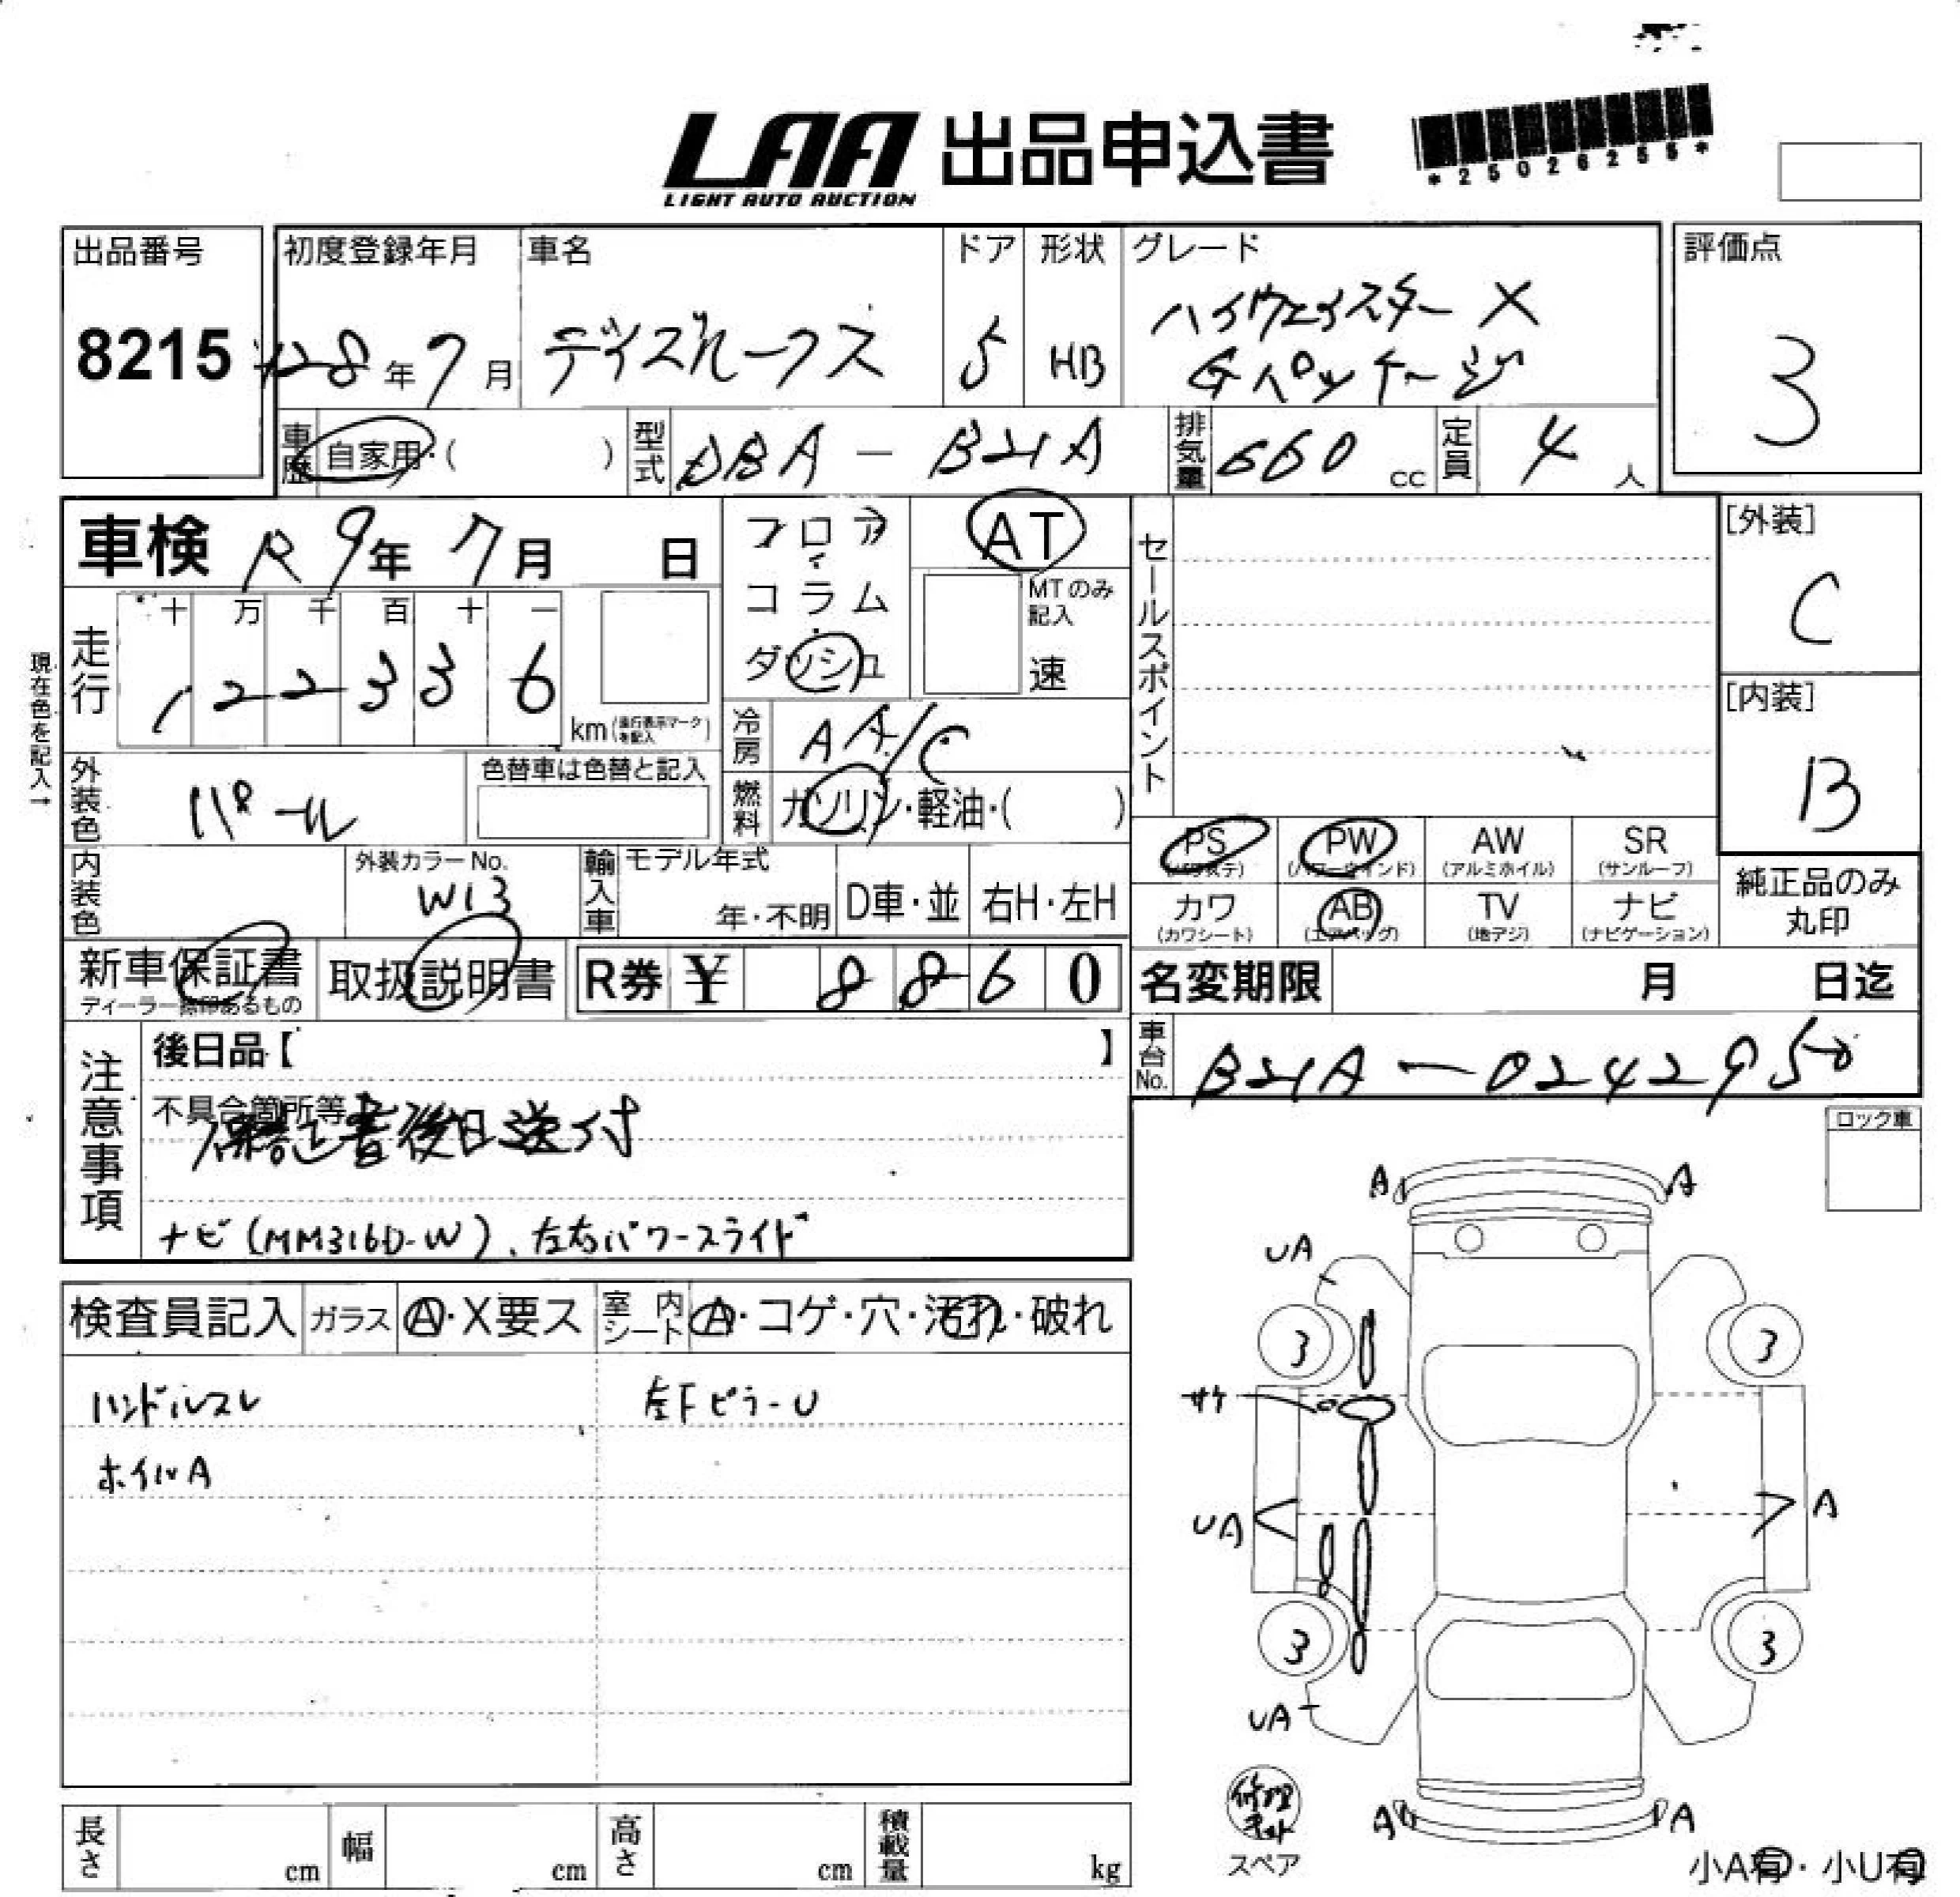 LAA 出品申込書
LIGHT AUTO AUCTION
*25026255*
出品番号
8215
初度登録年月
H28年7月
車名
デイズルークス
ドア
5
形状
HB
グレード
ハイウェイスター X
Gパッケージ
評価点
3
車歴 自家用・( )
型式 DBA - B21A
排気量 660 cc
定員 4 人
車検 R9年 7月 日
フロア
コラム
ダッシュ
AT
MTのみ記入
速
現在色を記入→
走行
十 万 千 百 十 一
1 2 2 3 3 6
km (走行表示マークを記入)
冷房 AA/C
燃料 ガソリン・軽油・( )
外装色 パール
色替車は色替と記入
内装色
外装カラーNo.
W13
輸入車
モデル年式
年・不明
D車・並
右H・左H
セールスポイント
[外装]
C
[内装]
B
PS
(パワステ)
PW
(パワーウインド)
AW
(アルミホイル)
SR
(サンルーフ)
カワ
(カワシート)
AB
(エアバッグ)
TV
(地デジ)
ナビ
(ナビゲーション)
純正品のみ
丸印
新車保証書
ディーラー捺印あるもの
取扱説明書
R券 ¥ 8860
名変期限 月 日迄
車台No. B21A-0242950
注意事項
後日品【 】
不具合箇所等
保証書後日送付
ナビ(MM316D-W)、左右パワースライド
ロック車
検査員記入
ガラス Ⓐ・X要ス
室内シート Ⓐ・コゲ・穴・汚れ・破れ
ハンドルスレ
左FピラーU
ホイルA
A A
UA
3 3
サケ
UA A
3 3
UA
A A
修理キット
スペア
小A有・小U有
長さ cm
幅 cm
高さ cm
積載量 kg